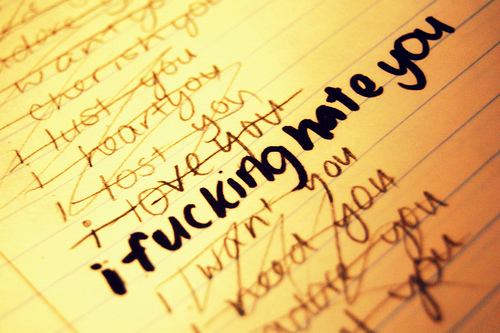 adore you
i want you
i cherish you
i lust you
i heart you
i lost you
i love you
i fucking hate you
i want you
i need you
adore you
you